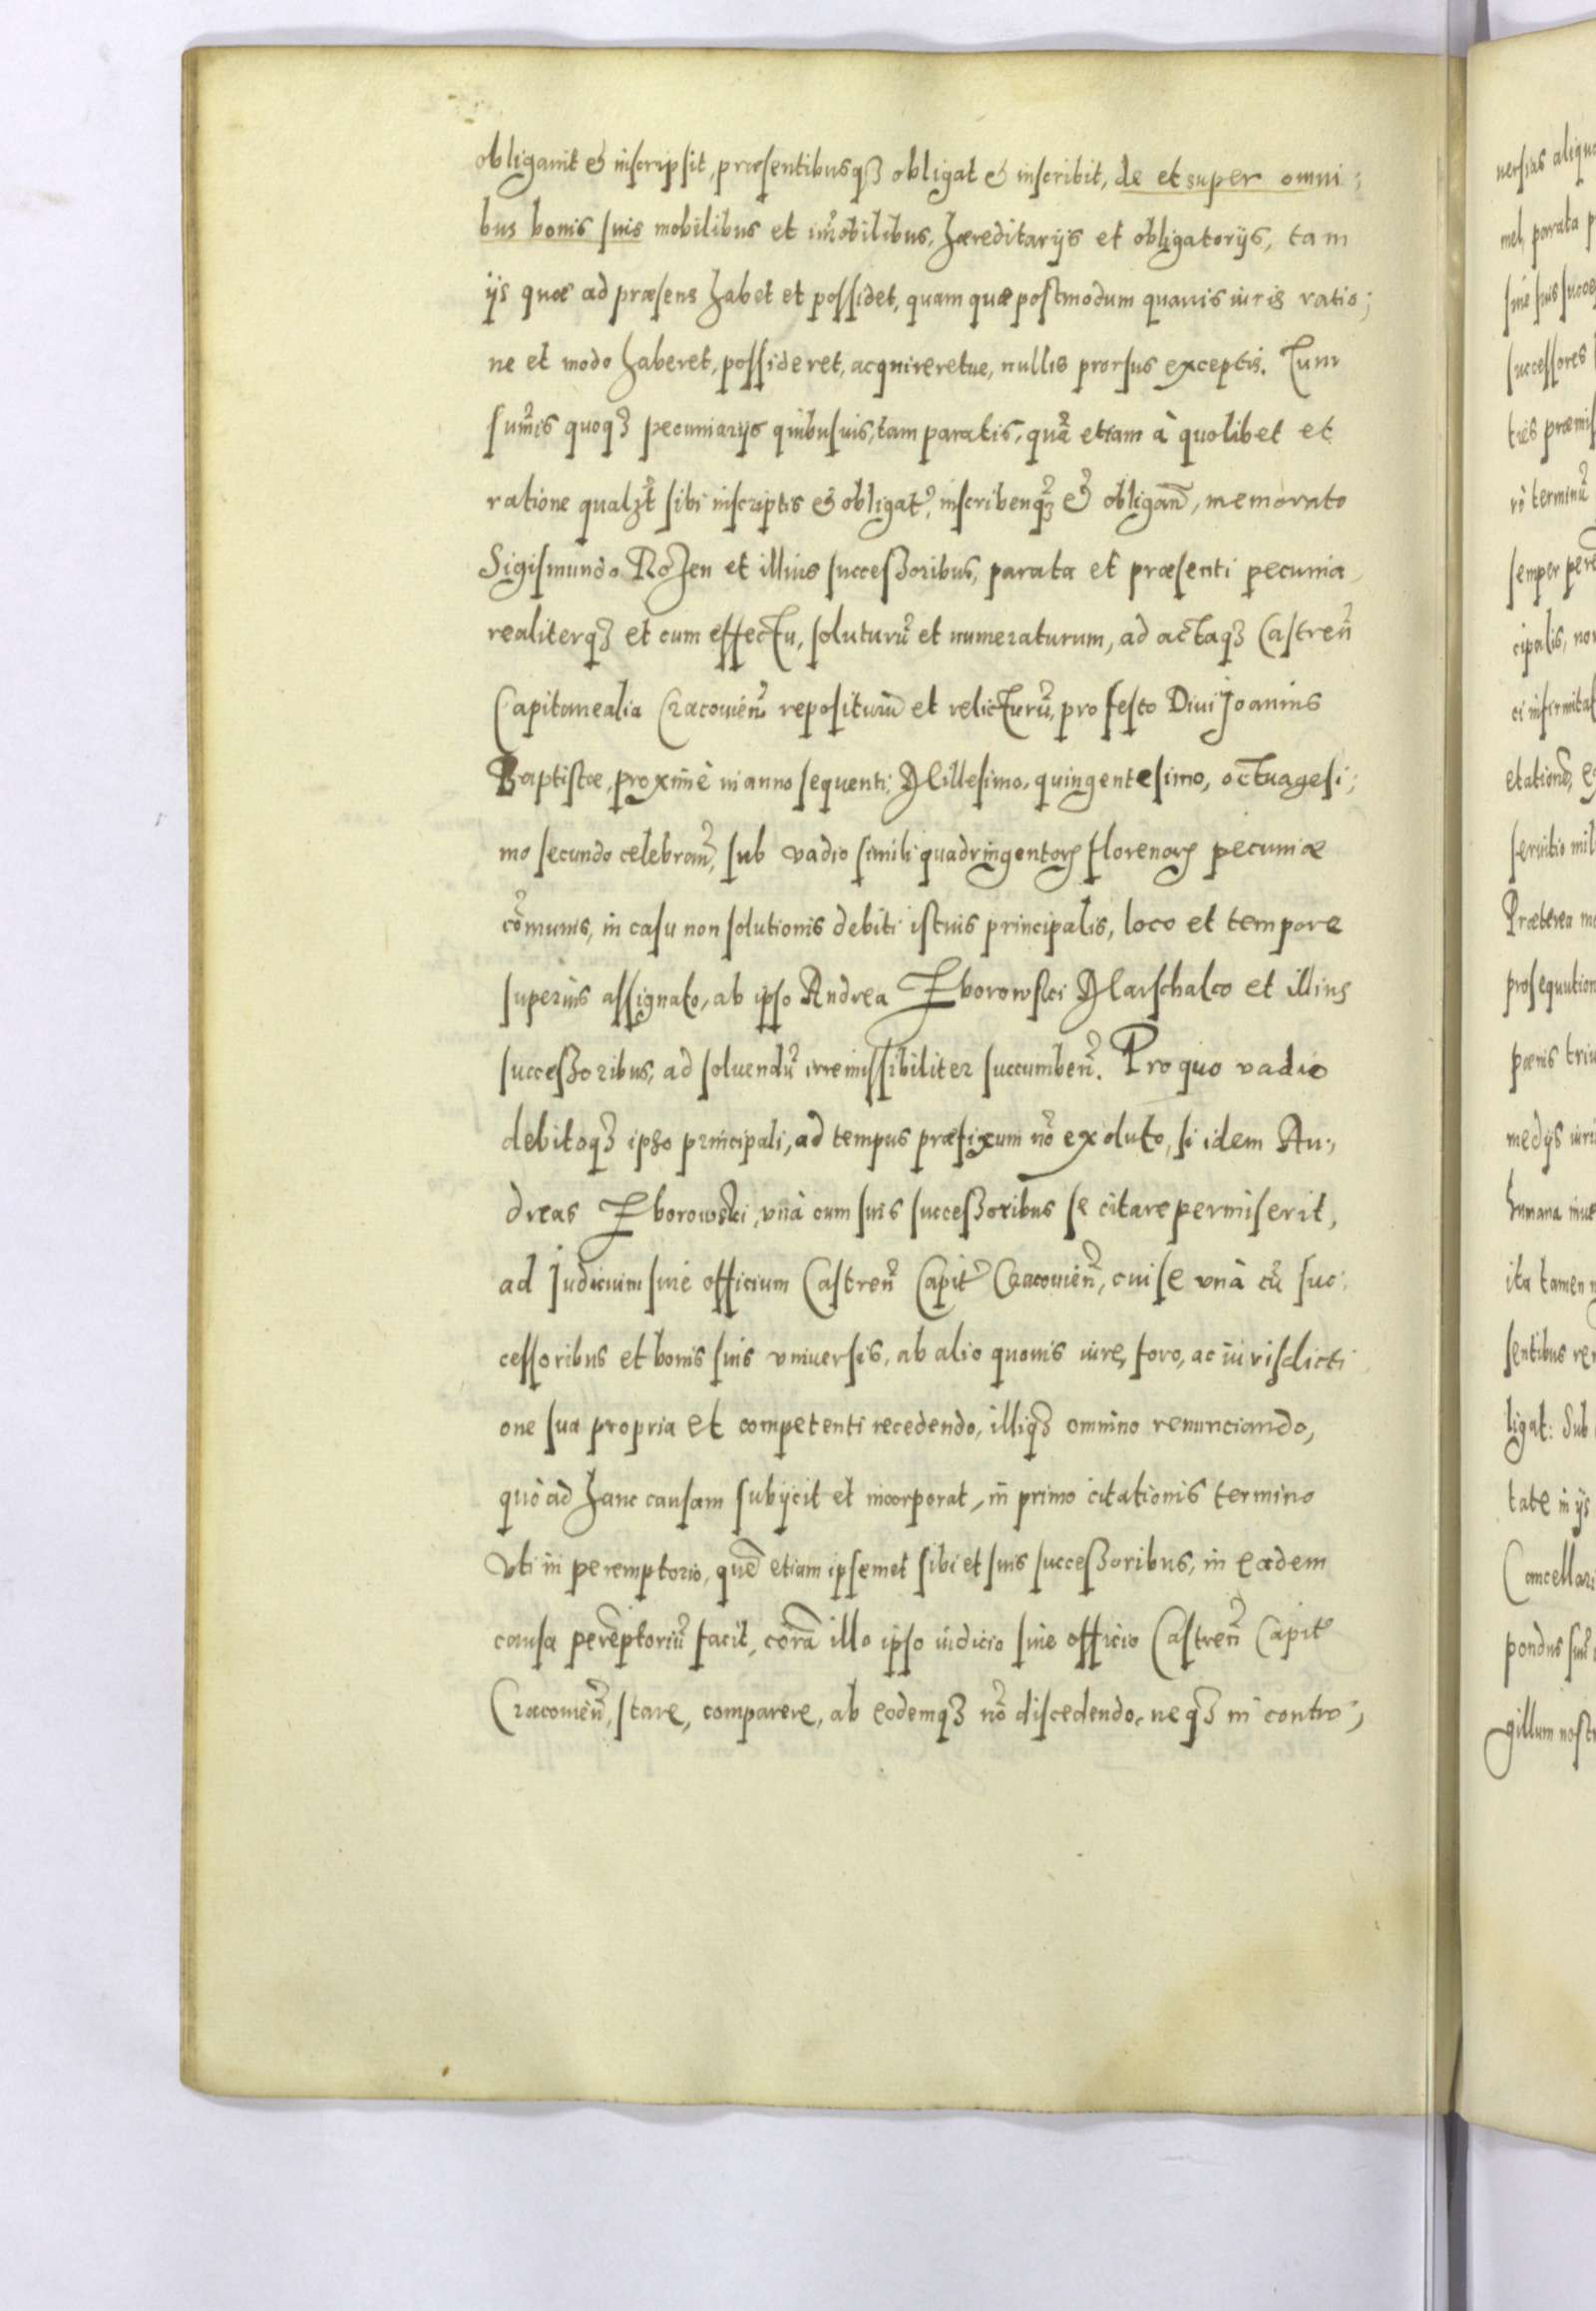 obligauit & inscripsit, præsentibusq3 obligat & inscribit, de et super omni;
bus bonis suis mobilibus et im̃obilibus, hæreditarijs et obligatorijs, tam
ijs quæ ad præsens habet et possidet, quam quæ postmodum quauis iuris ratio;
ne et modo haberet, possideret, acquireretue, nullis prorsus exceptis. Tum
sum̃is quoq3 pecuniarijs quibusuis, tam paratis, quã etiam à quolibet et
ratione qualzt̃ sibi inscriptis & obligat̃, inscribenq3 & obligan̄, memorato
Sigismundo Rozen et illius successoribus, parata et præsenti pecunia
realiterq3 et cum effectu, soluturũ et numeraturum, ad actaq3 Castren̄
Capitanealia Cracouien̄ repositurũ et relicturũ, pro festo Diui Joannis
Baptistæ, proximè in anno sequenti, Millesimo, quingentesimo, octuagesi;
mo secundo celebran̄, sub vadio simili quadringentorꝝ florenorꝝ pecuniæ
cõmunis, in casu non solutionis debiti istius principalis, loco et tempore
superius assignato, ab ipso Andrea Zborowski Marschalco et illius
successoribus, ad soluendũ irremissibiliter succumben̄. Pro quo vadio
debitoq3 ipso principali, ad tempus præfixum nõ exoluto, si idem An;
dreas Zborowski, vnà cum suis successoribus se citare permiserit,
ad Judicium siue officium Castren̄ Capit̃ Cracouien̄, cui se vnà cũ suc;
cessoribus et bonis suis vniuersis, ab alio quouis iure, foro, ac iurisdicti
one sua propria et competenti recedendo, illiq3 omnino renunciando,
quò ad hanc causam subijcit et incorporat, in primo citationis termino
vti in peremptorio, quẽ etiam ipsemet sibi et suis successoribus, in eadem
causa perẽptoriũ facit, corã illo ipso iudicio siue officio Castren̄ Capit̃
Cracouien̄, stare, comparere, ab eodemq3 nõ discedendo, neq3 in contro;
nersias aliqu
mel, parata p
siue suis succe
successores
tris præmis
rò terminũ
semper pere
cipalis, no
ci infirmita
etatione, e
seruitio mil
Præterea m
prosequution
pœnis triu
medijs iuri
humana inue
ita tamen
sentibus re
ligat: Sub
tate in ijs
Cancellari
pondus siue
gillum nostr